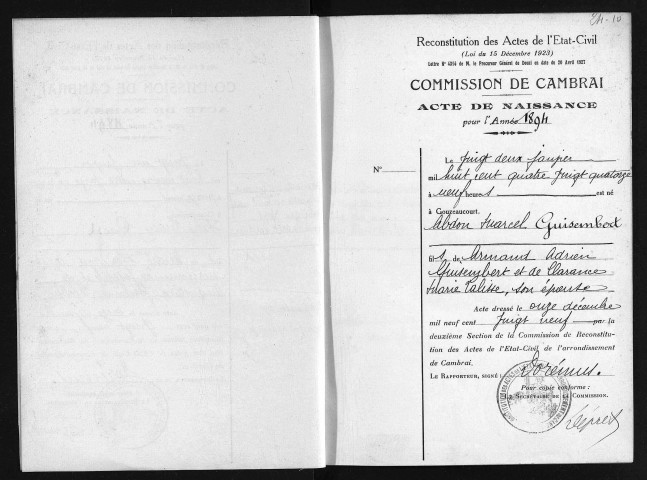 Reconstitution des Actes de l'Etat-Civil
(Loi du 15 Décembre 1923)
Lettre N° 5214 de M. le Procureur Général de Douai en date du 20 Avril 1927
COMMISSION DE CAMBRAI
ACTE DE NAISSANCE
pour l'Année 1894
N°
Le vingt deux janvier
mil huit cent quatre vingt quatorze
à neuf heures est né
à Gouzeaucourt.
Abdon Marcel Guisembert
fils de Armand Adrien
Guisembert et de Clarance
Marie Valisse, son épouse
Acte dressé le onze décembre
mil neuf cent vingt neuf par la
deuxième Section de la Commission de Reconstitu-
tion des Actes de l'Etat-Civil de l'arrondissement
de Cambrai.
Le Rapporteur, signé : Dorémus.
Pour copie conforme :
Le Secrétaire de la Commission.